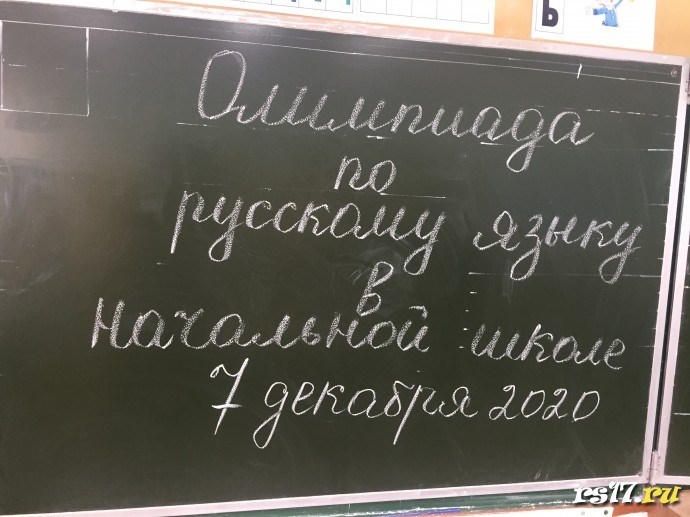 Ь
Олимпиада
по
русскому языку
в
начальной школе
7 декабря 2020
rs17.ru